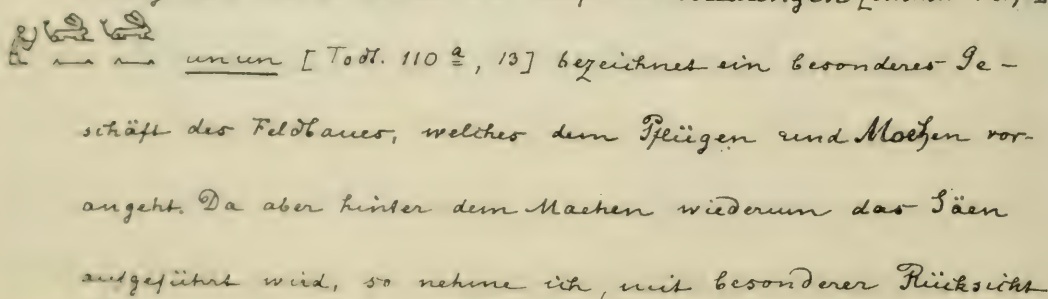 un un [Todt. 110 a, 13] bezeichnet ein besonderes Ge-
schäft des Feldbaues, welches dem Pflügen und Maehen vor-
angeht. Da aber hinter dem Maehen wiederum das Säen
aufgeführt wird, so nehme ich, mit besonderer Rücksicht